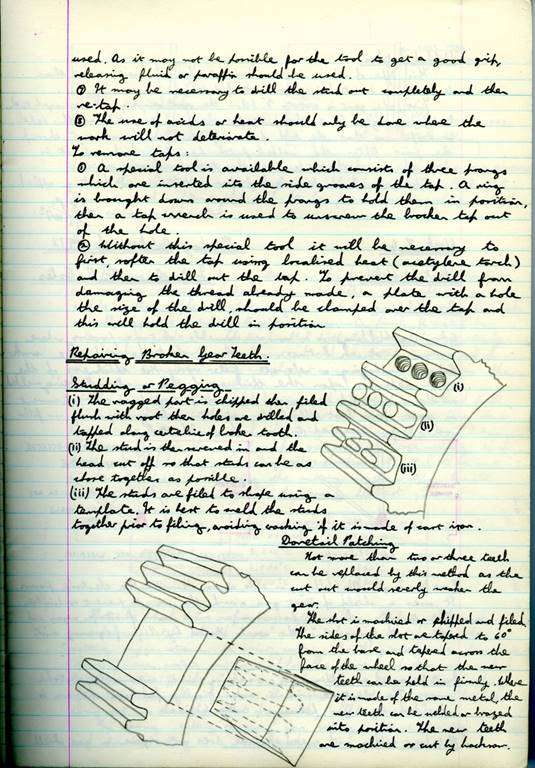 used. As it may not be possible for the tool to get a good grip,
releasing fluid or paraffin should be used.
② It may be necessary to drill the stud out completely and then
re-tap.
③ The use of acids or heat should only be done where the
work will not deteriorate.
To remove taps:
① A special tool is available which consists of three prongs
which are inserted into the side grooves of the tap. A ring
is brought down around the prongs to hold them in position,
then a tap wrench is used to unscrew the broken tap out
of the hole.
② Without this special tool it will be necessary to
first soften the tap using localised heat (acetylene torch)
and then to drill out the tap. To prevent the drill from
damaging the thread already made, a plate with a hole
the size of the drill, should be clamped over the tap and
this will hold the drill in position
Repairing Broken Gear Teeth.
Studding or Pegging
(i) The ragged part is chipped then filed
flush with root then holes are drilled and
tapped along centre line of broken tooth.
(ii) The stud is then screwed in and the
head cut off so that studs can be as
close together as possible.
(iii) The studs are filed to shape using a
template. It is best to weld the studs
together prior to filing, avoiding cracking if it is made of cast iron.
(i)
(ii)
(iii)
Dovetail Patching
Not more than two or three teeth
can be replaced by this method as the
cut out would severly weaken the
gear.
The slot is machined or chipped and filed.
The sides of the slot are tapered to 60°
from the base and tapered across the
face of the wheel so that the new
teeth can be held in firmly. Where
it is made of the same metal, the
new teeth can be welded or brazed
into position. The new teeth
are machined or cut by hacksaw.